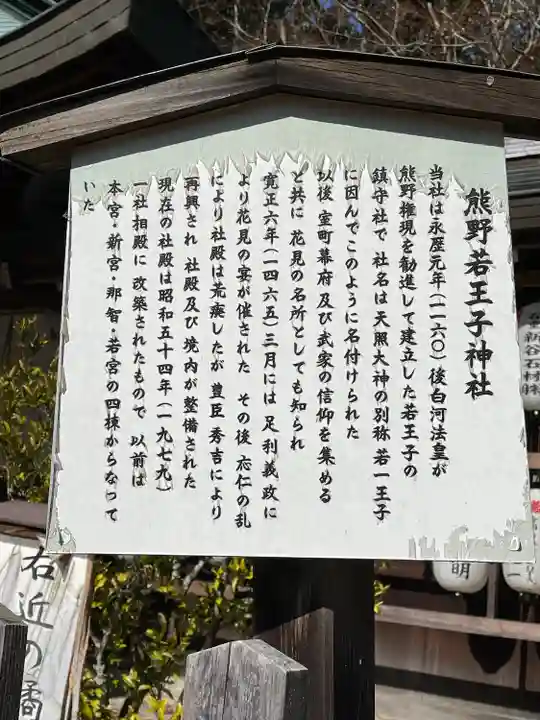 熊野若王子神社
当社は永歴元年(一一六〇)後白河法皇が
熊野権現を勧進して建立した若王子の
鎮守社で 社名は天照大神の別称若一王子
に因んでこのように名付けられた
以後 室町幕府及び武家の信仰を集める
と共に 花見の名所としても知られ
寛正六年(一四六五)三月には 足利義政に
より花見の宴が催された その後 応仁の乱
により社殿は荒癈したが 豊臣秀吉により
再興され 社殿及び境内が整備された
現在の社殿は昭和五十四年(一九七九)
一社相殿に 改築されたもので 以前は
本宮・新宮・那智・若宮の四棟からなって
いた
新谷石材株
明
右近の橘